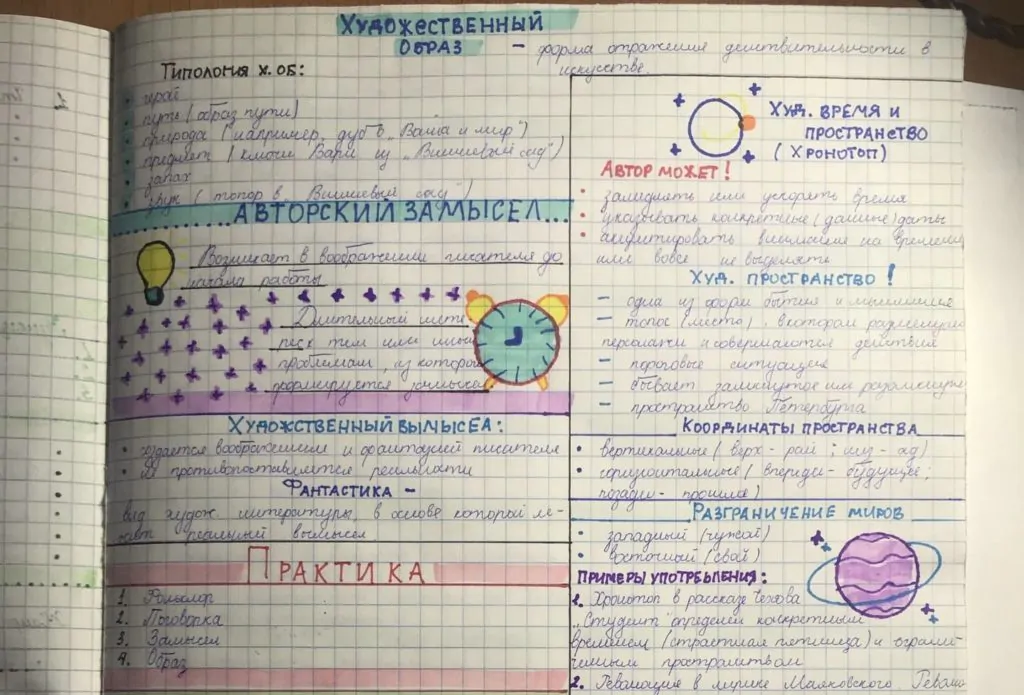 Художественный
образ – форма отражения действительности в
искусстве.
Типология х. об:
• герой
• путь (образ пути)
• природа (например, дуб в „Война и мир")
• предмет (ключи Вари из „Вишневый сад")
• запах
• звук (топор в „Вишневый сад")
Авторский замысел...
Возникает в воображении писателя до
начала работы
Длительный
тем или иным
проблемам, из которой
формируется замысел.
Художественный вымысел:
• создается воображением и фантазией писателя
• противопоставляется реальности
Фантастика –
вид худож. литературы, в основе которой ле-
жит реальный вымысел
Практика
1. Фольклор
2. Поговорка
3. Замысел
4. Образ
Худ. время и
пространство
(хронотоп)
Автор может!
• замедлять или ускорять время
• указывать конкретные (данные) даты
• акцентировать внимание на времени
или вовсе не выделять
Худ. пространство!
– одна из форм бытия и мышления
– топос (место), в котором размещены
персонажи и совершаются действия
– пороговые ситуации
– бывает замкнутое или разомкнутое
– пространство Петербурга
Координаты пространства
• вертикальные (верх - рай; низ - ад)
• горизонтальные (впереди - будущее;
позади - прошлое)
Разграничение миров
• западный (чужой)
• восточный (свой)
Примеры употребления:
1. Хронотоп в рассказе Чехова
„Студент" определен конкретным
временем (страстная пятница) и ограни-
ченным пространством
2. Революция в лирике Маяковского.